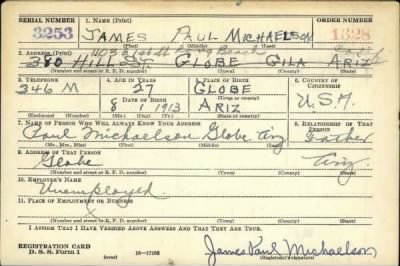 SERIAL NUMBER 1. NAME (Print) ORDER NUMBER
3253 JAMES PAUL MICHAELSON 1328
(First) (Middle) (Last)
2. ADDRESS (Print)
Long Beach
380 HILL ST. GLOBE GILA ARIZ
(Number and street or R. F. D. number) (Town) (County) (State)
3. TELEPHONE 4. AGE IN YEARS 5. PLACE OF BIRTH 6. COUNTRY OF CITIZENSHIP
346 M 27 GLOBE
DATE OF BIRTH (Town or county)
8 1 1913 ARIZ U.S.A.
(Exchange) (Number) (Mo.) (Day) (Yr.) (State or country)
7. NAME OF PERSON WHO WILL ALWAYS KNOW YOUR ADDRESS 8. RELATIONSHIP OF THAT PERSON
Paul Michaelson Globe Ariz Father
(Mr., Mrs., Miss) (First) (Middle) (Last)
9. ADDRESS OF THAT PERSON
Globe Ariz
(Number and street or R. F. D. number) (Town) (County) (State)
10. EMPLOYER'S NAME
Unemployed
11. PLACE OF EMPLOYMENT OR BUSINESS
X
(Number and street or R. F. D. number) (Town) (County) (State)
I AFFIRM THAT I HAVE VERIFIED ABOVE ANSWERS AND THAT THEY ARE TRUE.
REGISTRATION CARD
D. S. S. Form 1 16—17105 James Paul Michaelson
(over) (Registrant's signature)